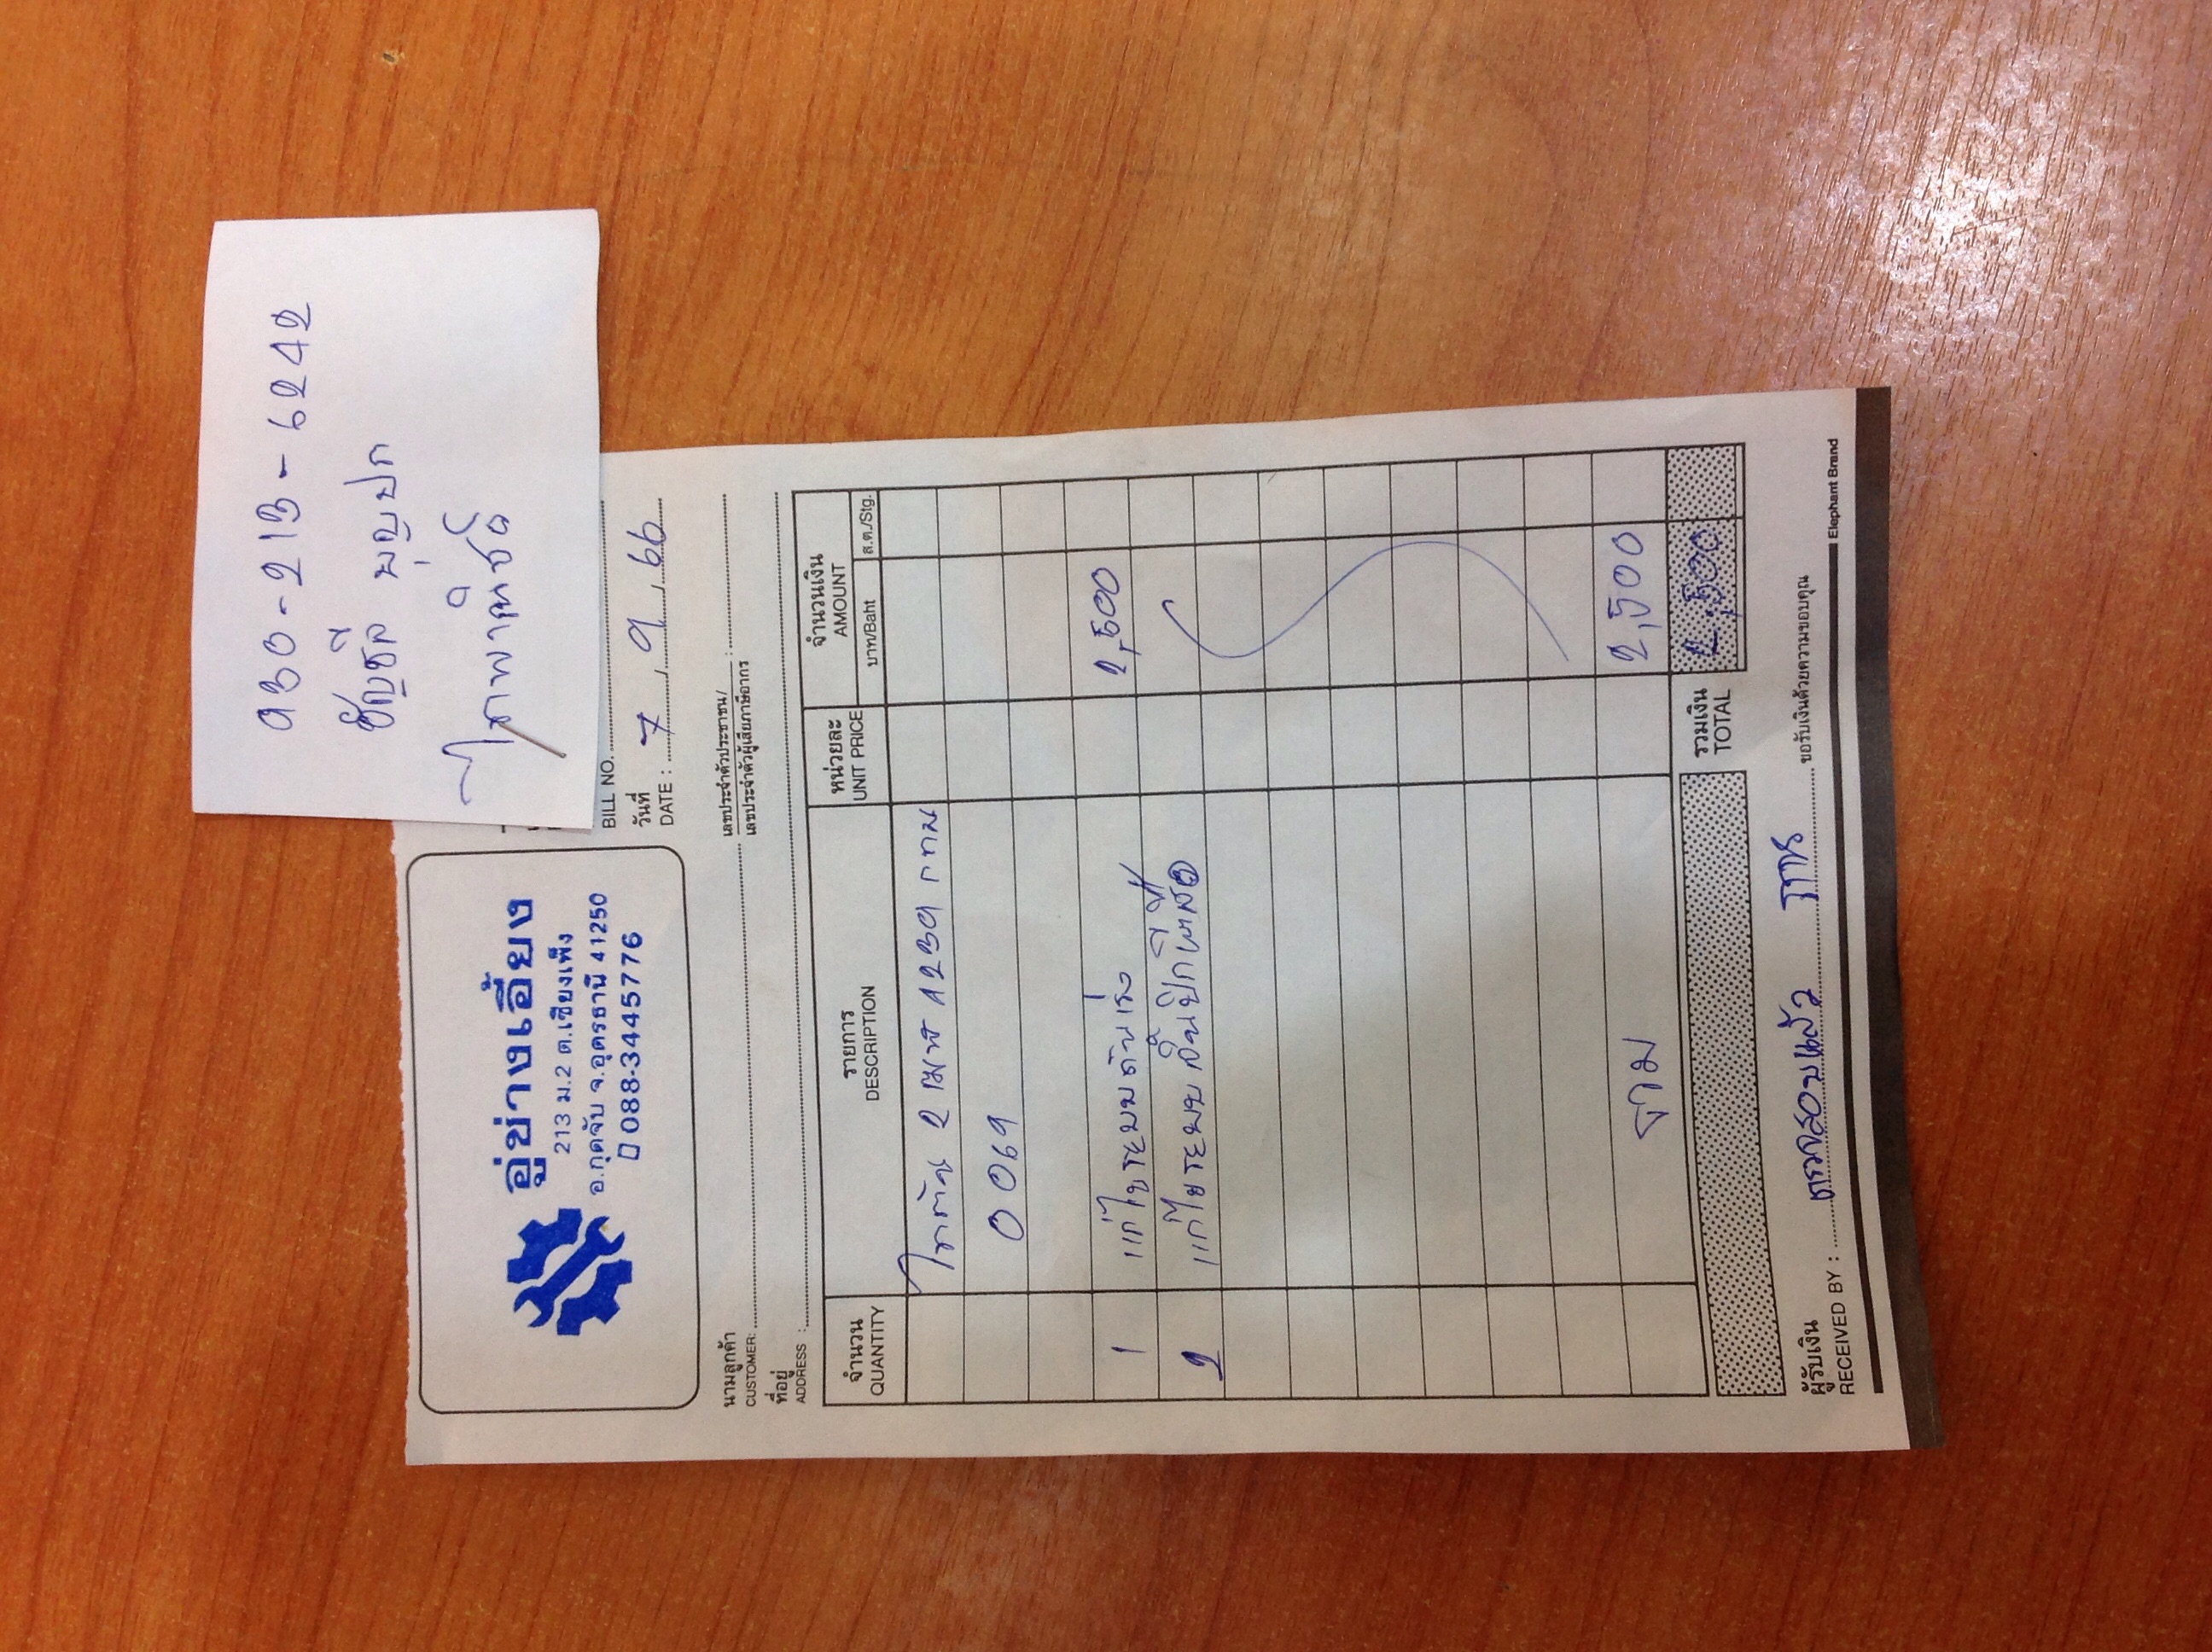 930-213-6242
ชัญชีล บุญปก
ไทยพาณิชย์
อู่ช่างเอี้ยง
213 ม.2 ต.เชียงเพ็ง
อ.กุดจับ จ.อุดรธานี 41250
088-3445776
BILL NO.
วันที่ DATE : 7, 9, 66
นามลูกค้า CUSTOMER:
เลขประจำตัวประชาชน/ เลขประจำตัวผู้เสียภาษีอากร :
ที่อยู่ ADDRESS :
จำนวน QUANTITY รายการ DESCRIPTION หน่วยละ UNIT PRICE จำนวนเงิน AMOUNT
บาท/Baht ส.ต./Stg.
2 กทม
0069
1 แก้ไขระบบคันเร่ง 2,500
2 แก้ไขระบบ
รวม 2,500
รวมเงิน TOTAL 2,500
ผู้รับเงิน RECEIVED BY : ตรวจสอบแล้ว ขอรับเงินด้วยความขอบคุณ
Elephant Brand